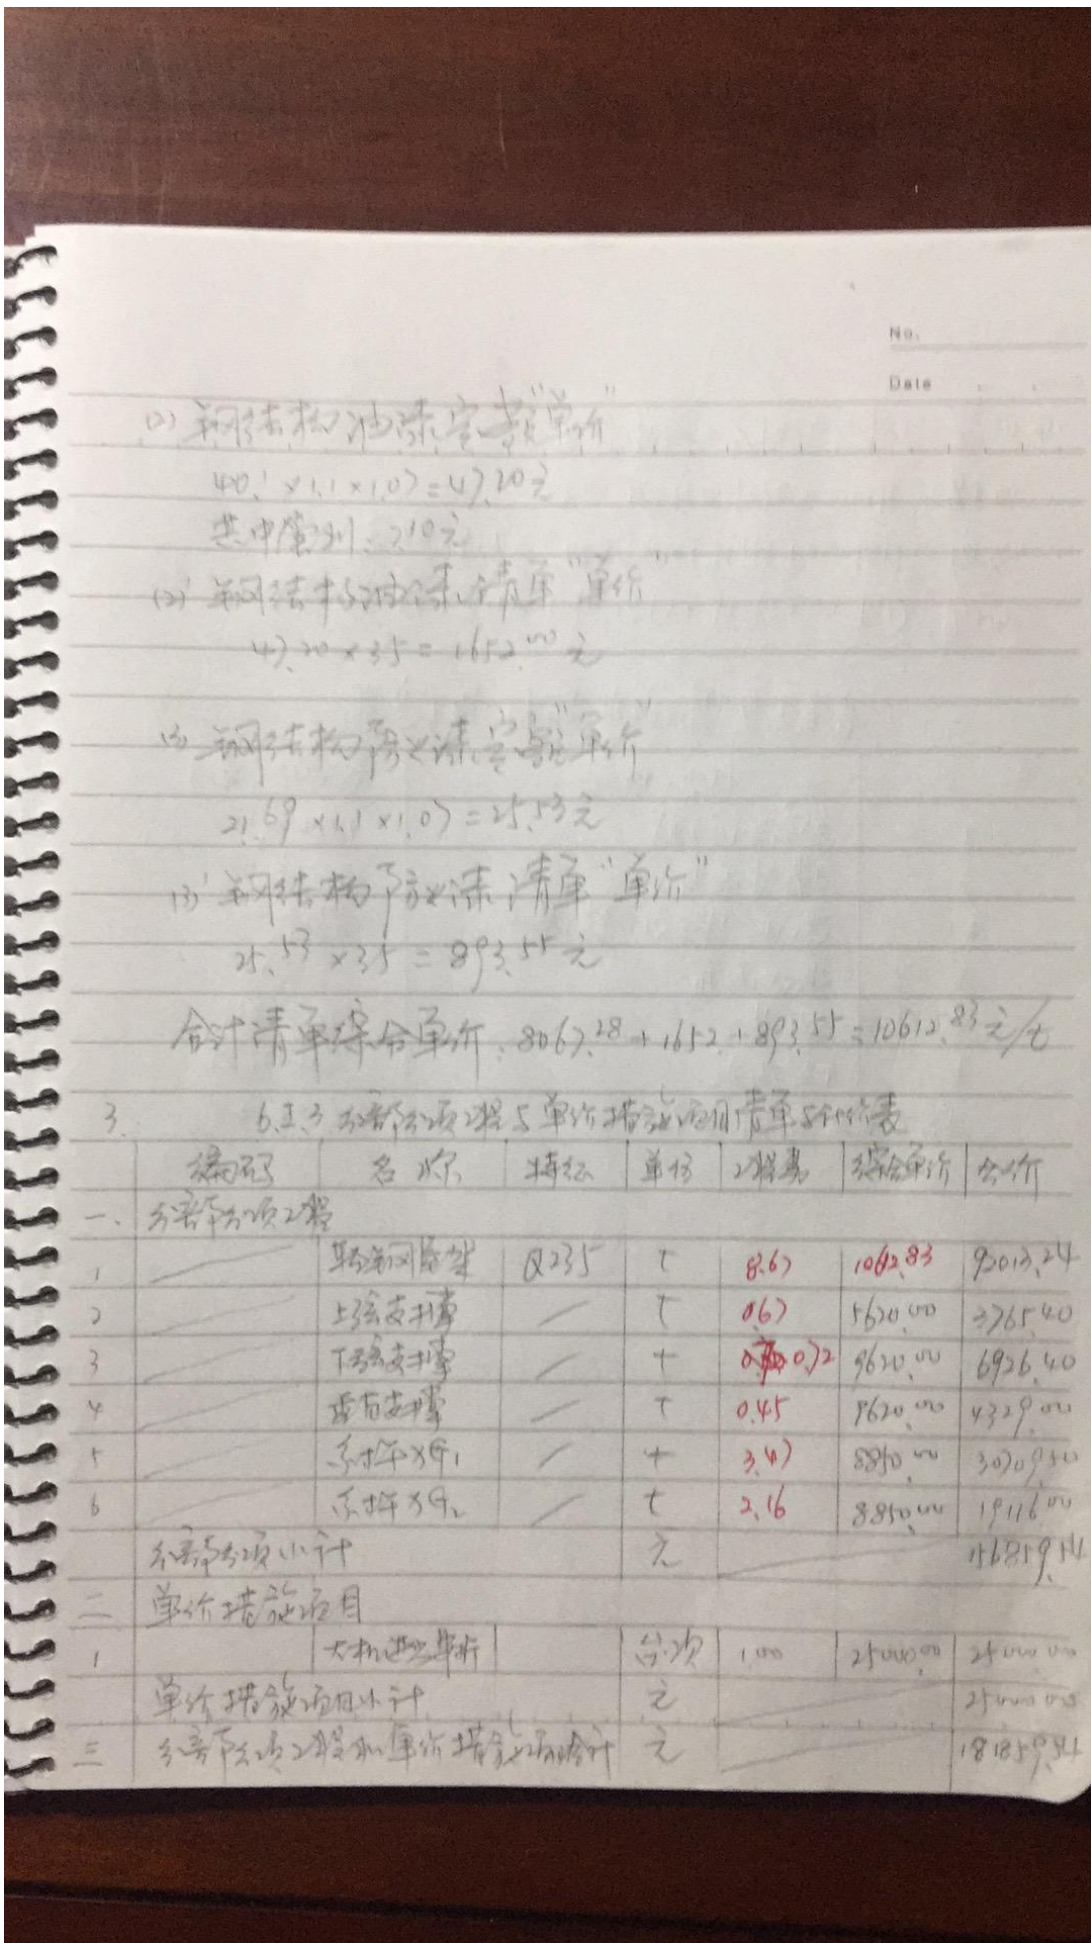 No.
Date
(2) 钢结构油漆定额"单价"
40.1 ×1.1×1.07=47.20元
其中管利: 7.10元
(2)' 钢结构油漆清单"单价"
47.20×35=1652.00元
(3) 钢结构防火漆定额"单价"
21.69×1.1×1.07=25.53元
(3)' 钢结构防火漆清单"单价"
25.53×35=893.55元
合计清单综合单价: 8067.28+1652+893.55=10612.83元/t
3. 6.I.3 分部分项工程与单价措施项目清单与计价表
编码 名称 特征 单位 工程量 综合单价 合价
一、 分部分项工程
1 轻钢屋架 Q235 t 8.67 10612.83 92013.24
2 上弦支撑 t 0.67 5620.00 3765.40
3 下弦支撑 t 0.72 9620.00 6926.40
4 垂直支撑 t 0.45 9620.00 4329.00
5 系杆XG1 t 3.47 8850.00 30709.50
6 系杆XG2 t 2.16 8850.00 19116.00
分部分项小计 元 156859.54
二 单价措施项目
1 大机进出场 台次 1.00 25000.00 25000.00
单价措施项目小计 元 25000.00
三 分部分项工程和单价措施项目合计 元 181859.54